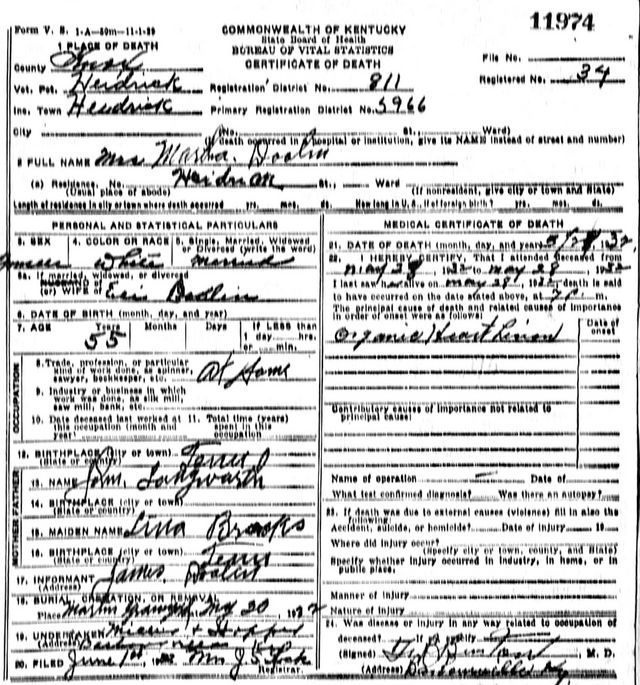 11974
Form V. S. 1-A-50m-11-1-29
COMMONWEALTH OF KENTUCKY
State Board of Health
BUREAU OF VITAL STATISTICS
CERTIFICATE OF DEATH
1 PLACE OF DEATH
County Knox
File No.
Vot. Pct. Heidrick
Registration District No. 811
Registered No. 34
Inc. Town Heidrick
Primary Registration District No. 5966
City (No. St., Ward)
(If death occurred in hospital or institution, give its NAME instead of street and number)
2 FULL NAME Mrs Martha Doolin
(a) Residence. No. Heidrick St., Ward.
(Usual place of abode) (If nonresident, give city or town and State)
Length of residence in city or town where death occurred yrs. mos. ds. How long in U. S., if of foreign birth? yrs. mos. ds.
PERSONAL AND STATISTICAL PARTICULARS
3. SEX 4. COLOR OR RACE 5. Single, Married, Widowed
Divorced (write the word)
White married
5a. If married, widowed, or divorced
HUSBAND of
(or) WIFE of
6. DATE OF BIRTH (month, day, and year)
7. AGE Years Months Days If LESS than
1 day hrs.
or min.
55
OCCUPATION
8. Trade, profession, or particular
kind of work done, as spinner,
sawyer, bookkeeper, etc. At Home
9. Industry or business in which
work was done, as silk mill,
saw mill, bank, etc.
10. Date deceased last worked at
this occupation (month and
year)
11. Total time (years)
spent in this
occupation
12. BIRTHPLACE (city or town)
(State or country) Tenn
MOTHER FATHER
13. NAME John Longworth
14. BIRTHPLACE (city or town)
(State or country)
15. MAIDEN NAME Lina Brooks
16. BIRTHPLACE (city or town)
(State or country) Tenn
17. INFORMANT James Doolin
(Address)
18. BURIAL, CREMATION, OR REMOVAL
Place Martin 1932
19. UNDERTAKER
(Address)
20. FILED June 1st 1932 Mrs J.
Registrar.
MEDICAL CERTIFICATE OF DEATH
21. DATE OF DEATH (month, day, and year)
22. I HEREBY CERTIFY, That I attended deceased from
1932 to May 28, 1932
I last saw h alive on May 28, 1932 death is said
to have occurred on the date stated above, at m.
The principal cause of death and related causes of importance
in order of onset were as follows:
Date of
onset
Organic Heart
Contributory causes of importance not related to
principal cause:
Name of operation Date of
What test confirmed diagnosis? Was there an autopsy?
23. If death was due to external causes (violence) fill in also the
following:
Accident, suicide, or homicide? Date of injury 19
Where did injury occur?
(Specify city or town, county, and State)
Specify whether injury occurred in industry, in home, or in
public place.
Manner of injury
Nature of injury
24. Was disease or injury in any way related to occupation of
deceased? If so, specify
(Signed) M. D.
(Address) Barbourville Ky